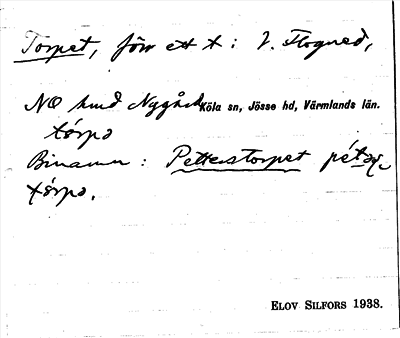 Torpet, förr ett t : V. Flogned,
NO hmd Nygård Köla sn, Jösse hd, Värmlands län.
tórpə
Binamn : Petterstorpet
tórpə.
ELOV SILFORS 1938.